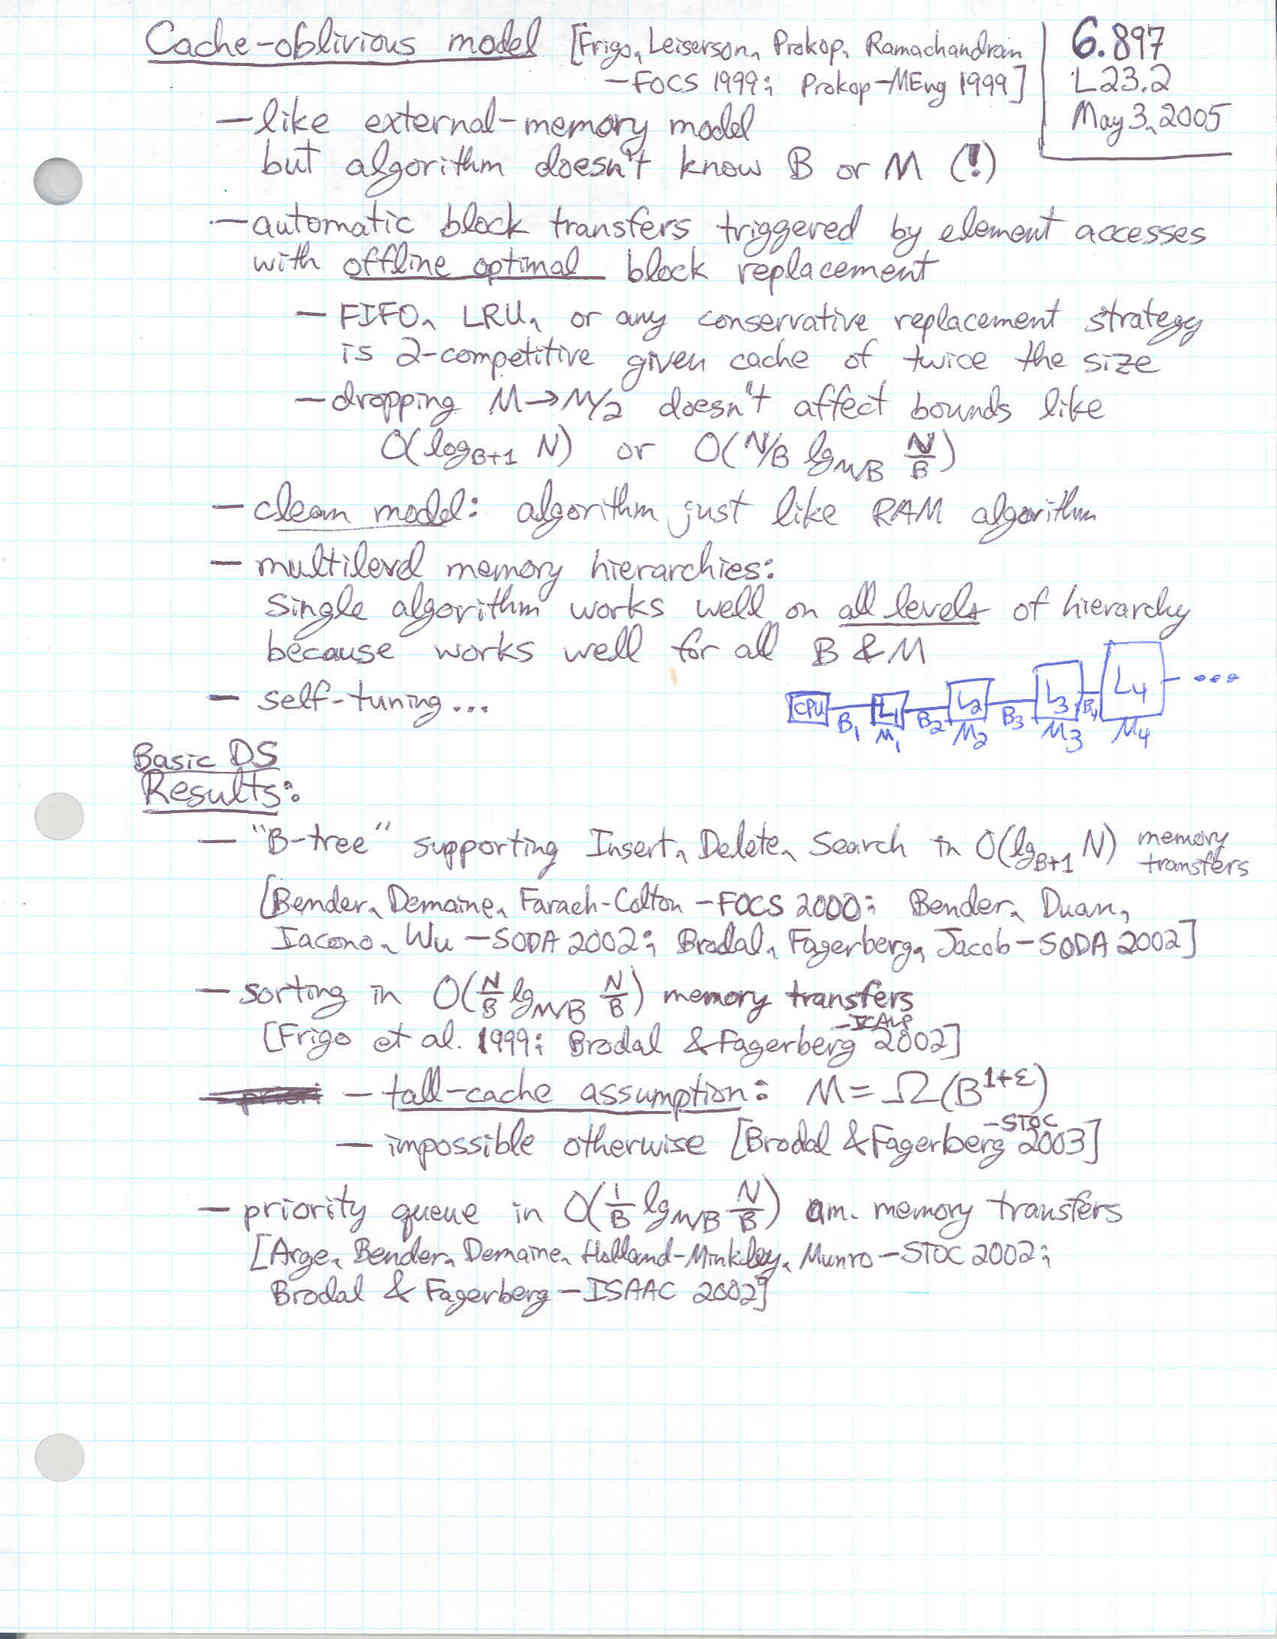 Cache-oblivious model [Frigo, Leiserson, Prokop, Ramachandran
—FOCS 1999; Prokop—MEng 1999]
6.897
L23.2
May 3, 2005
—like external-memory model
but algorithm doesn't know B or M (!)
—automatic block transfers triggered by element accesses
with offline optimal block replacement
— FIFO, LRU, or any conservative replacement strategy
is 2-competitive given cache of twice the size
—dropping M→M/2 doesn't affect bounds like
O(log_{B+1} N) or O(N/B lg_{M/B} N/B)
— clean model: algorithm just like RAM algorithm
— multilevel memory hierarchies:
single algorithm works well on all levels of hierarchy
because works well for all B & M
— self-tuning...
CPU B₁ L₁ B₂ L₂ B₃ L₃ B₄ L₄ ...
M₁ M₂ M₃ M₄
Basic DS
Results:
— "B-tree" supporting Insert, Delete, Search in O(lg_{B+1} N) memory transfers
[Bender, Demaine, Farach-Colton —FOCS 2000; Bender, Duan,
Iacono, Wu —SODA 2002; Brodal, Fagerberg, Jacob—SODA 2002]
— sorting in O(N/B lg_{M/B} N/B) memory transfers
[Frigo et al. 1999; Brodal & Fagerberg —ICALP 2002]
— tall-cache assumption: M = Ω(B^{1+ε})
— impossible otherwise [Brodal & Fagerberg —STOC 2003]
— priority queue in O(1/B lg_{M/B} N/B) am. memory transfers
[Arge, Bender, Demaine, Holland-Minkley, Munro —STOC 2002;
Brodal & Fagerberg —ISAAC 2002]